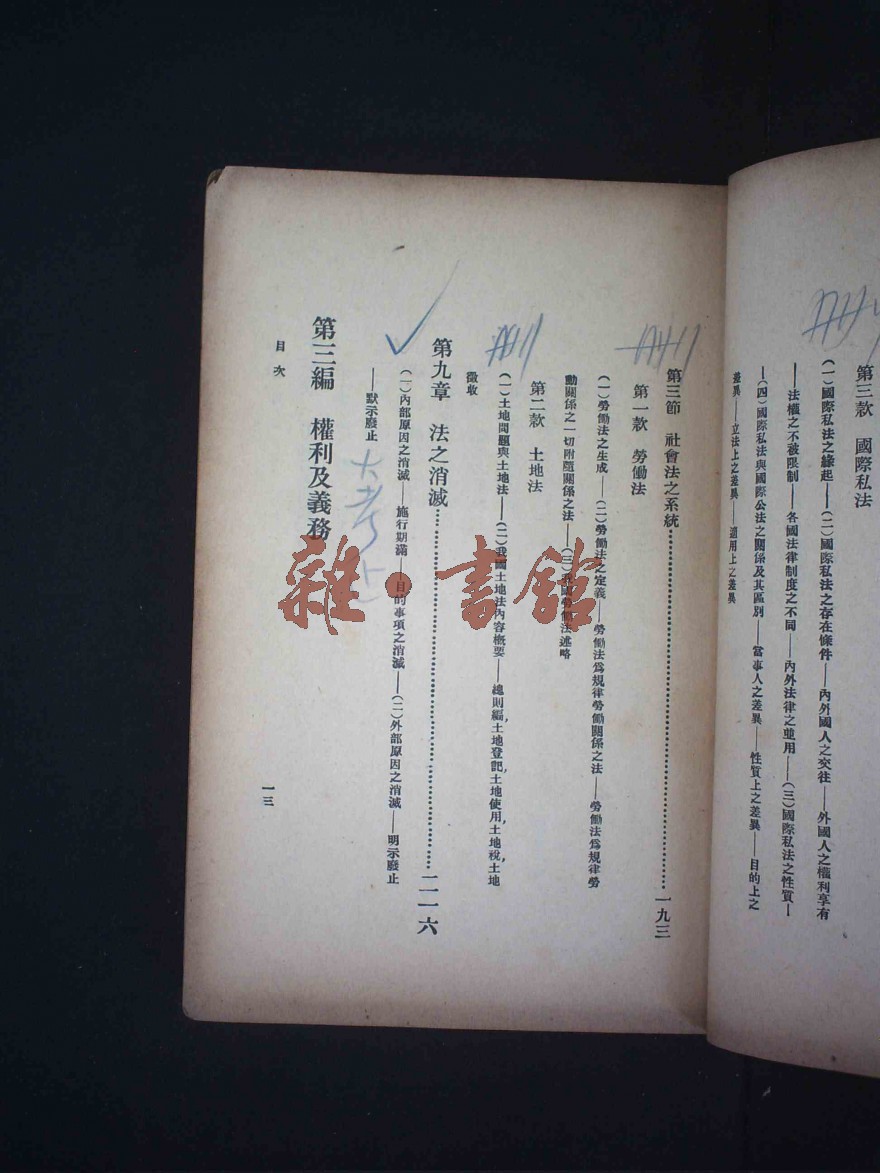 第三款　國際私法
（一）國際私法之緣起——（二）國際私法之存在條件——內外國人之交往——外國人之權利享有
——法權之不被限制——各國法律制度之不同——內外法律之並用——（三）國際私法之性質—
—（四）國際私法與國際公法之關係及其區別——當事人之差異——性質上之差異——目的上之
差異——立法上之差異——適用上之差異
第三節　社會法之系統…………………………一九三
第一款　勞働法
（一）勞働法之生成——（二）勞働法之定義——勞働法為規律勞働關係之法——勞働法為規律勞
働關係之一切附隨關係之法——（三）我國勞働法述略
第二款　土地法
（一）土地問題與土地法——（二）我國土地法內容概要——總則編，土地登記，土地使用，土地稅，土地
徵收
第九章　法之消滅…………………………二一六
（一）內部原因之消滅——施行期滿——目的事項之消滅——（二）外部原因之消滅——明示廢止
——默示廢止
大考
第三編　權利及義務
目次
一三
雜・書館